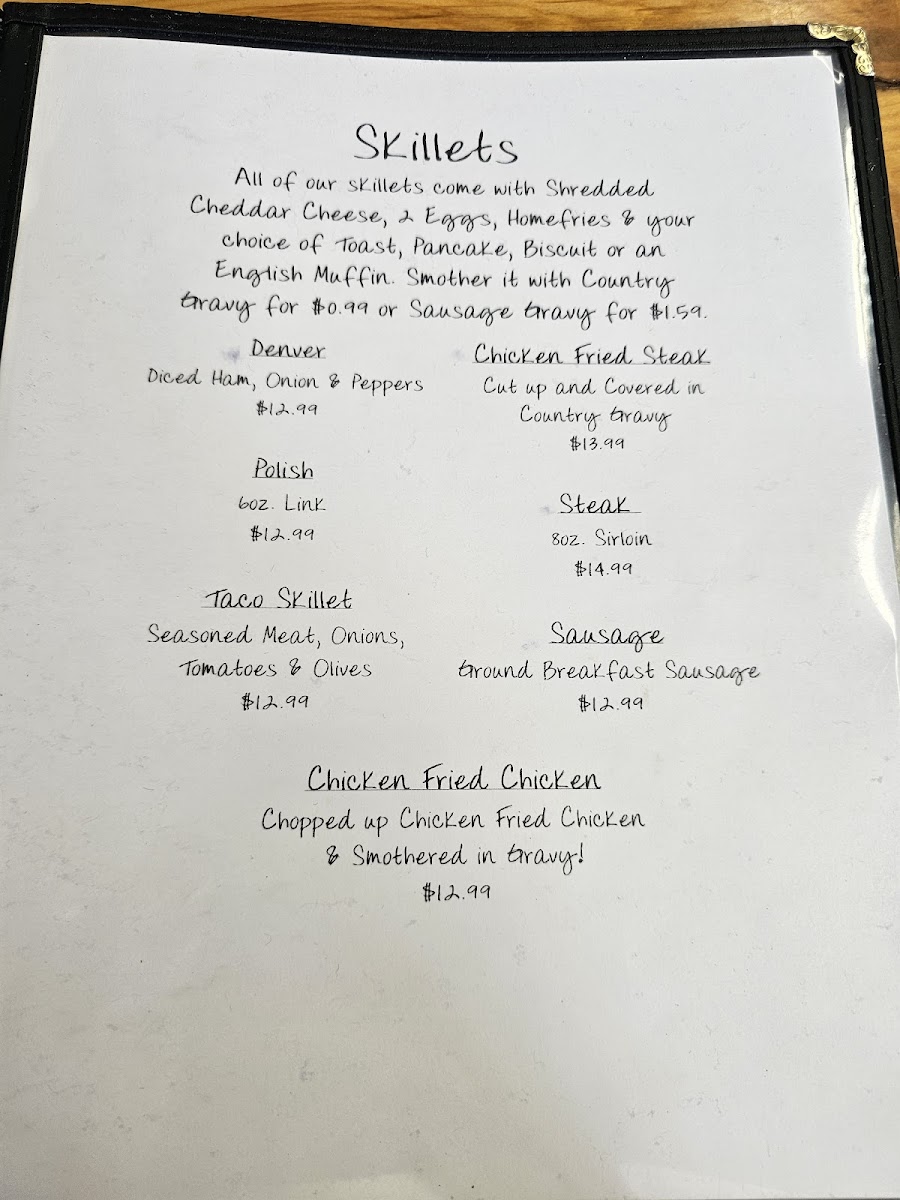 Skillets
All of our skillets come with Shredded
Cheddar Cheese, 2 Eggs, Homefries & your
choice of Toast, Pancake, Biscuit or an
English Muffin. Smother it with Country
Gravy for $0.99 or Sausage Gravy for $1.59.
Denver
Diced Ham, Onion & Peppers
$12.99
Polish
6oz. Link
$12.99
Taco Skillet
Seasoned Meat, Onions,
Tomatoes & Olives
$12.99
Chicken Fried Steak
Cut up and Covered in
Country Gravy
$13.99
Steak
8oz. Sirloin
$14.99
Sausage
Ground Breakfast Sausage
$12.99
Chicken Fried Chicken
Chopped up Chicken Fried Chicken
& Smothered in Gravy!
$12.99